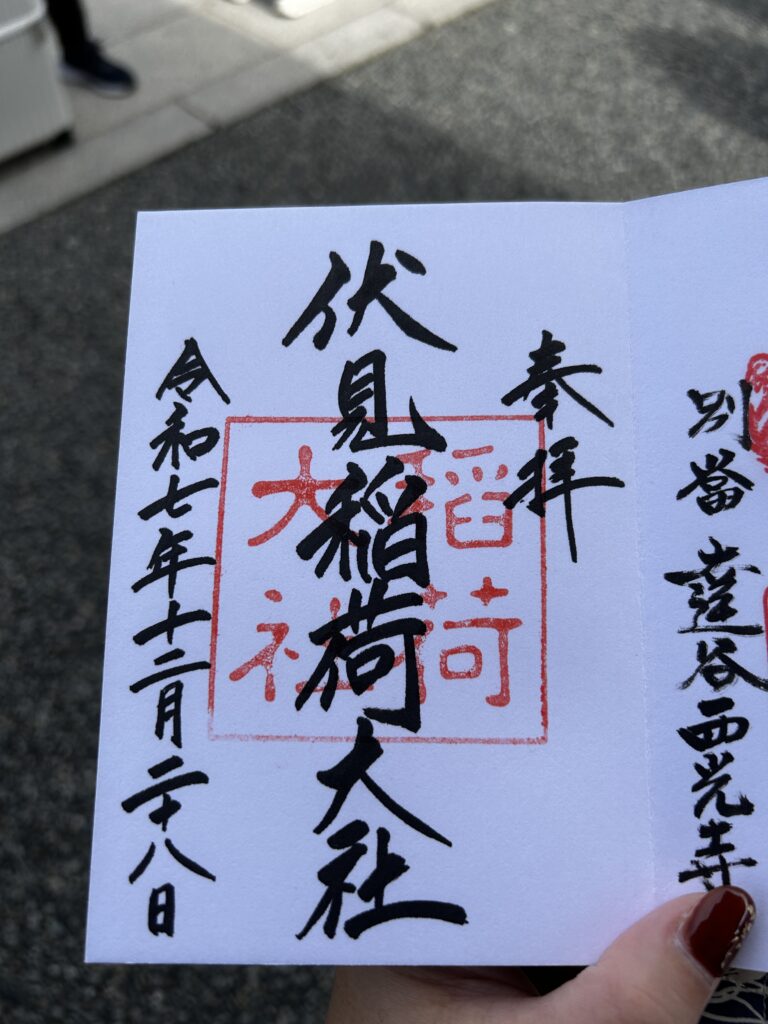 別當 達谷西光寺
奉拝
伏見稲荷大社
稲荷
大社
令和七年十二月二十八日